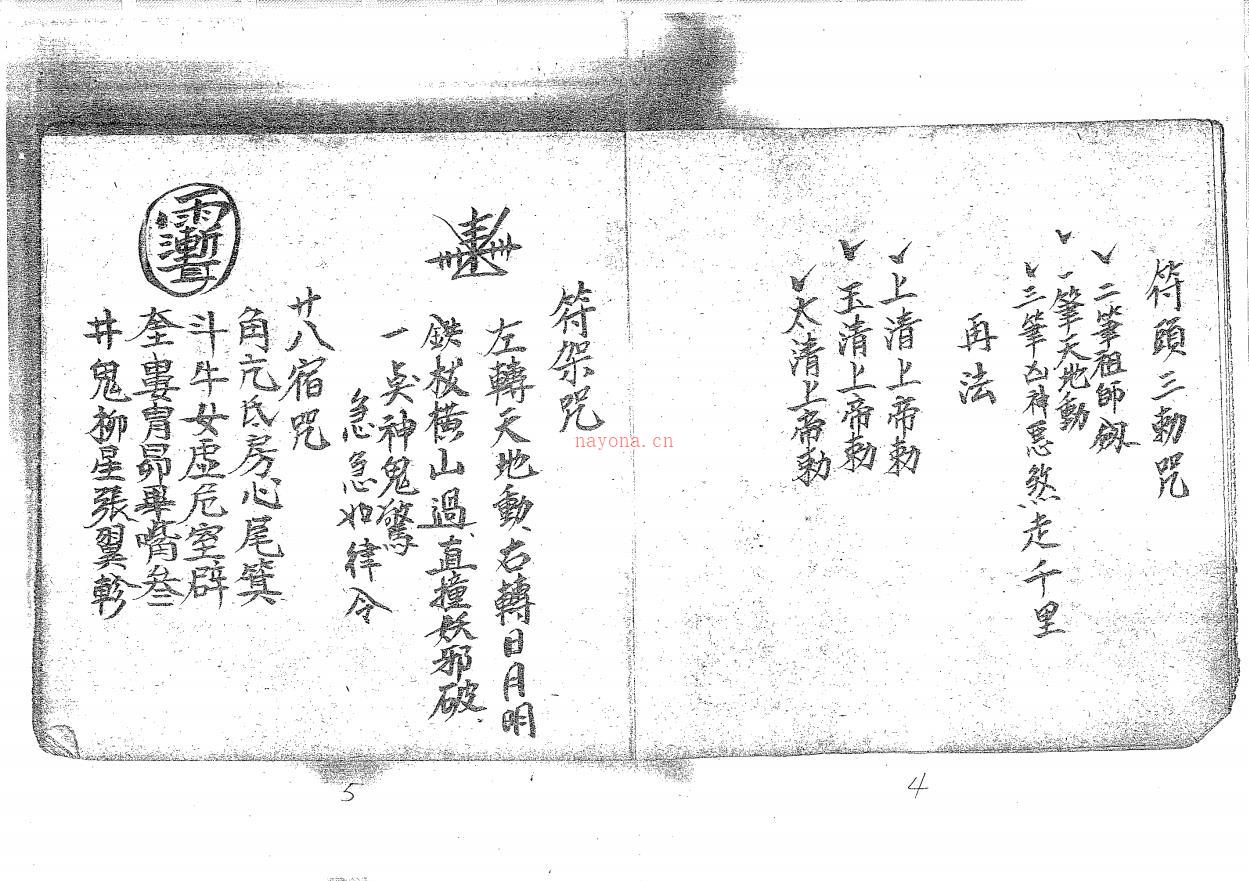 符頭三勅咒
✓二筆祖師劔
✓一筆天地動
✓三筆凶神惡煞走千里
再法
✓上清上帝勅
✓玉清上帝勅
✓太清上帝勅
4
符架咒
左轉天地動右轉日月明
鉄杖橫山過直撞妖邪破
一奌神鬼驚
急急如律令
廿八宿咒
角亢氐房心尾箕
斗牛女虛危室辟
奎婁胃昴畢嘴叁
井鬼柳星張翼軫
5
nayona.cn